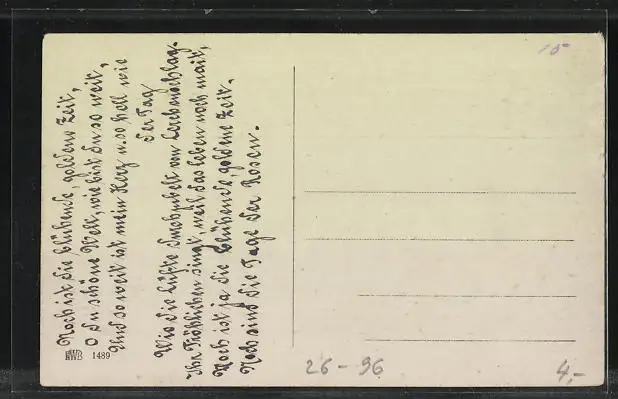 Noch ist die blühende, goldene Zeit,
O du schöne Welt, wie bist du so weit,
Und so weit ist mein Herz u. so hell wie
der Tag
Wie die Lüfte durchjubelt von Lerchenschlag.
Ihr Fröhlichen singt, weil das Leben noch mait,
Noch ist ja die blühende, goldene Zeit,
Noch sind die Tage der Rosen.
HWB 1489
10
26-96
4,-